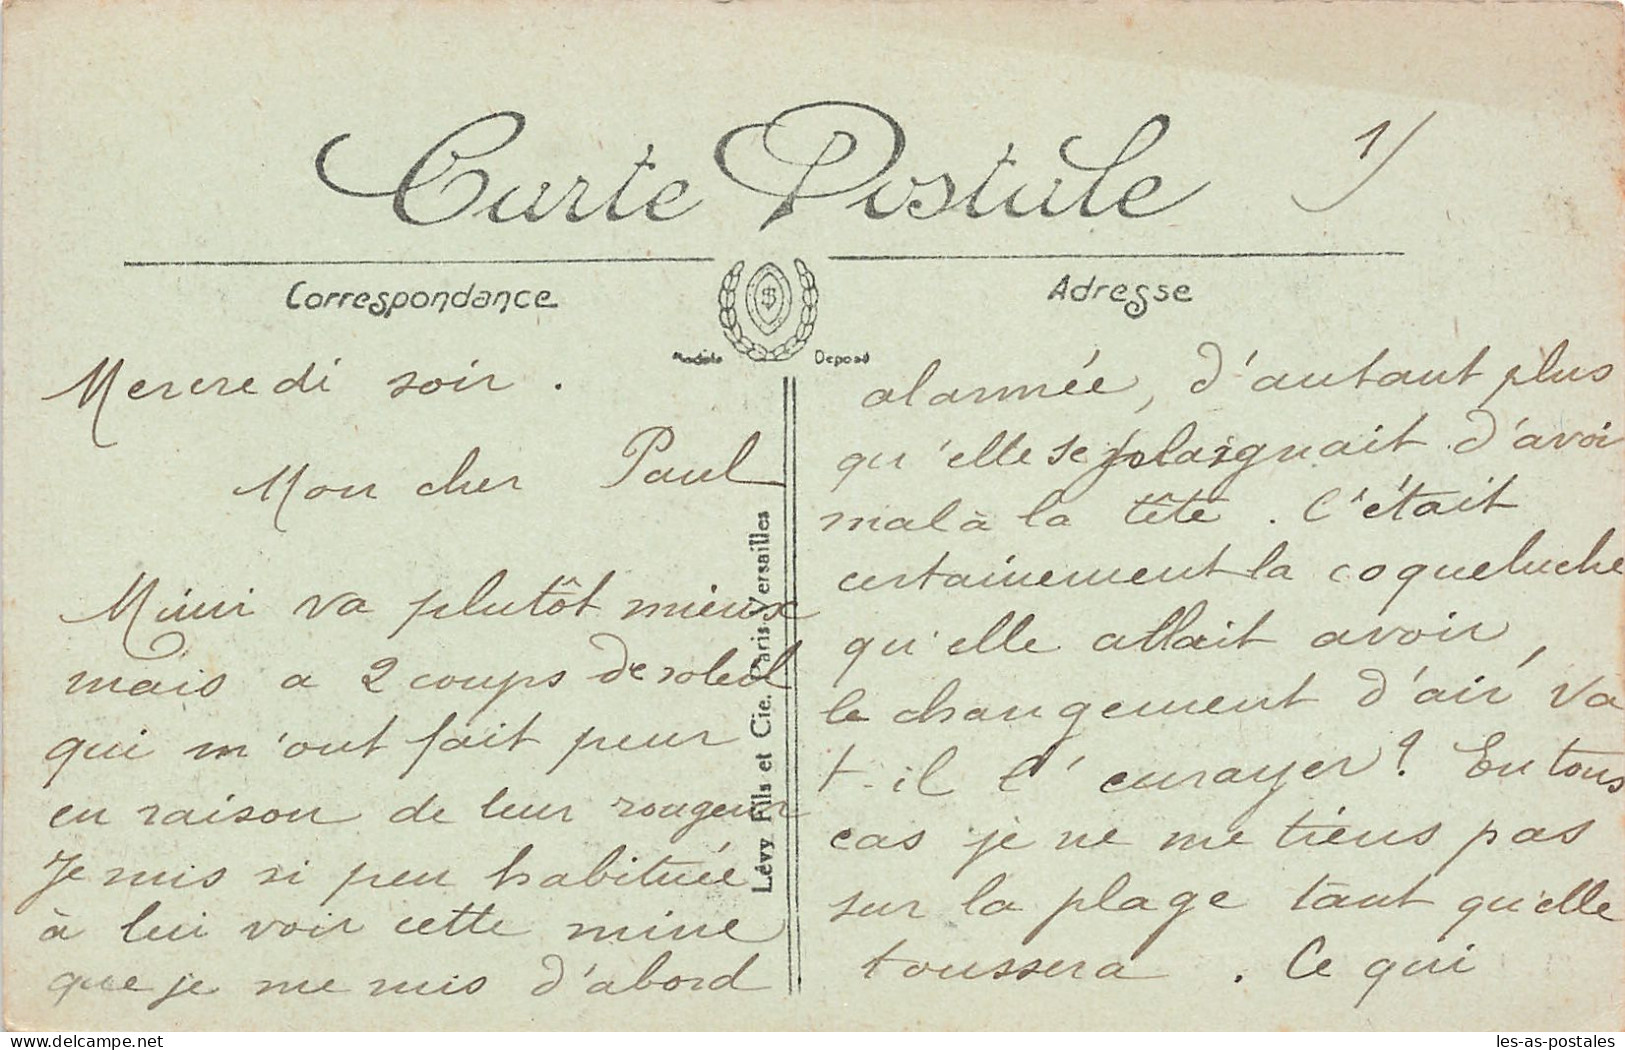 Carte Postale
1/
Correspondance
Adresse
Modèle Déposé
Mercredi soir.
Mon cher Paul
Mimi va plutôt mieux
mais a 2 coups de soleil
qui m'ont fait peur
en raison de leur rougeur
Je suis si peu habituée
à lui voir cette mine
que je me suis d'abord
Lévy Fils et Cie. Paris-Versailles
alarmée, d'autant plus
qu'elle se plaignait d'avoir
mal à la tête. C'était
certainement la coqueluche
qu'elle allait avoir,
le changement d'air va
t-il l'enrayer? En tous
cas je ne me tiens pas
sur la plage tant qu'elle
toussera. Ce qui
delcampe.net
les-as-postales